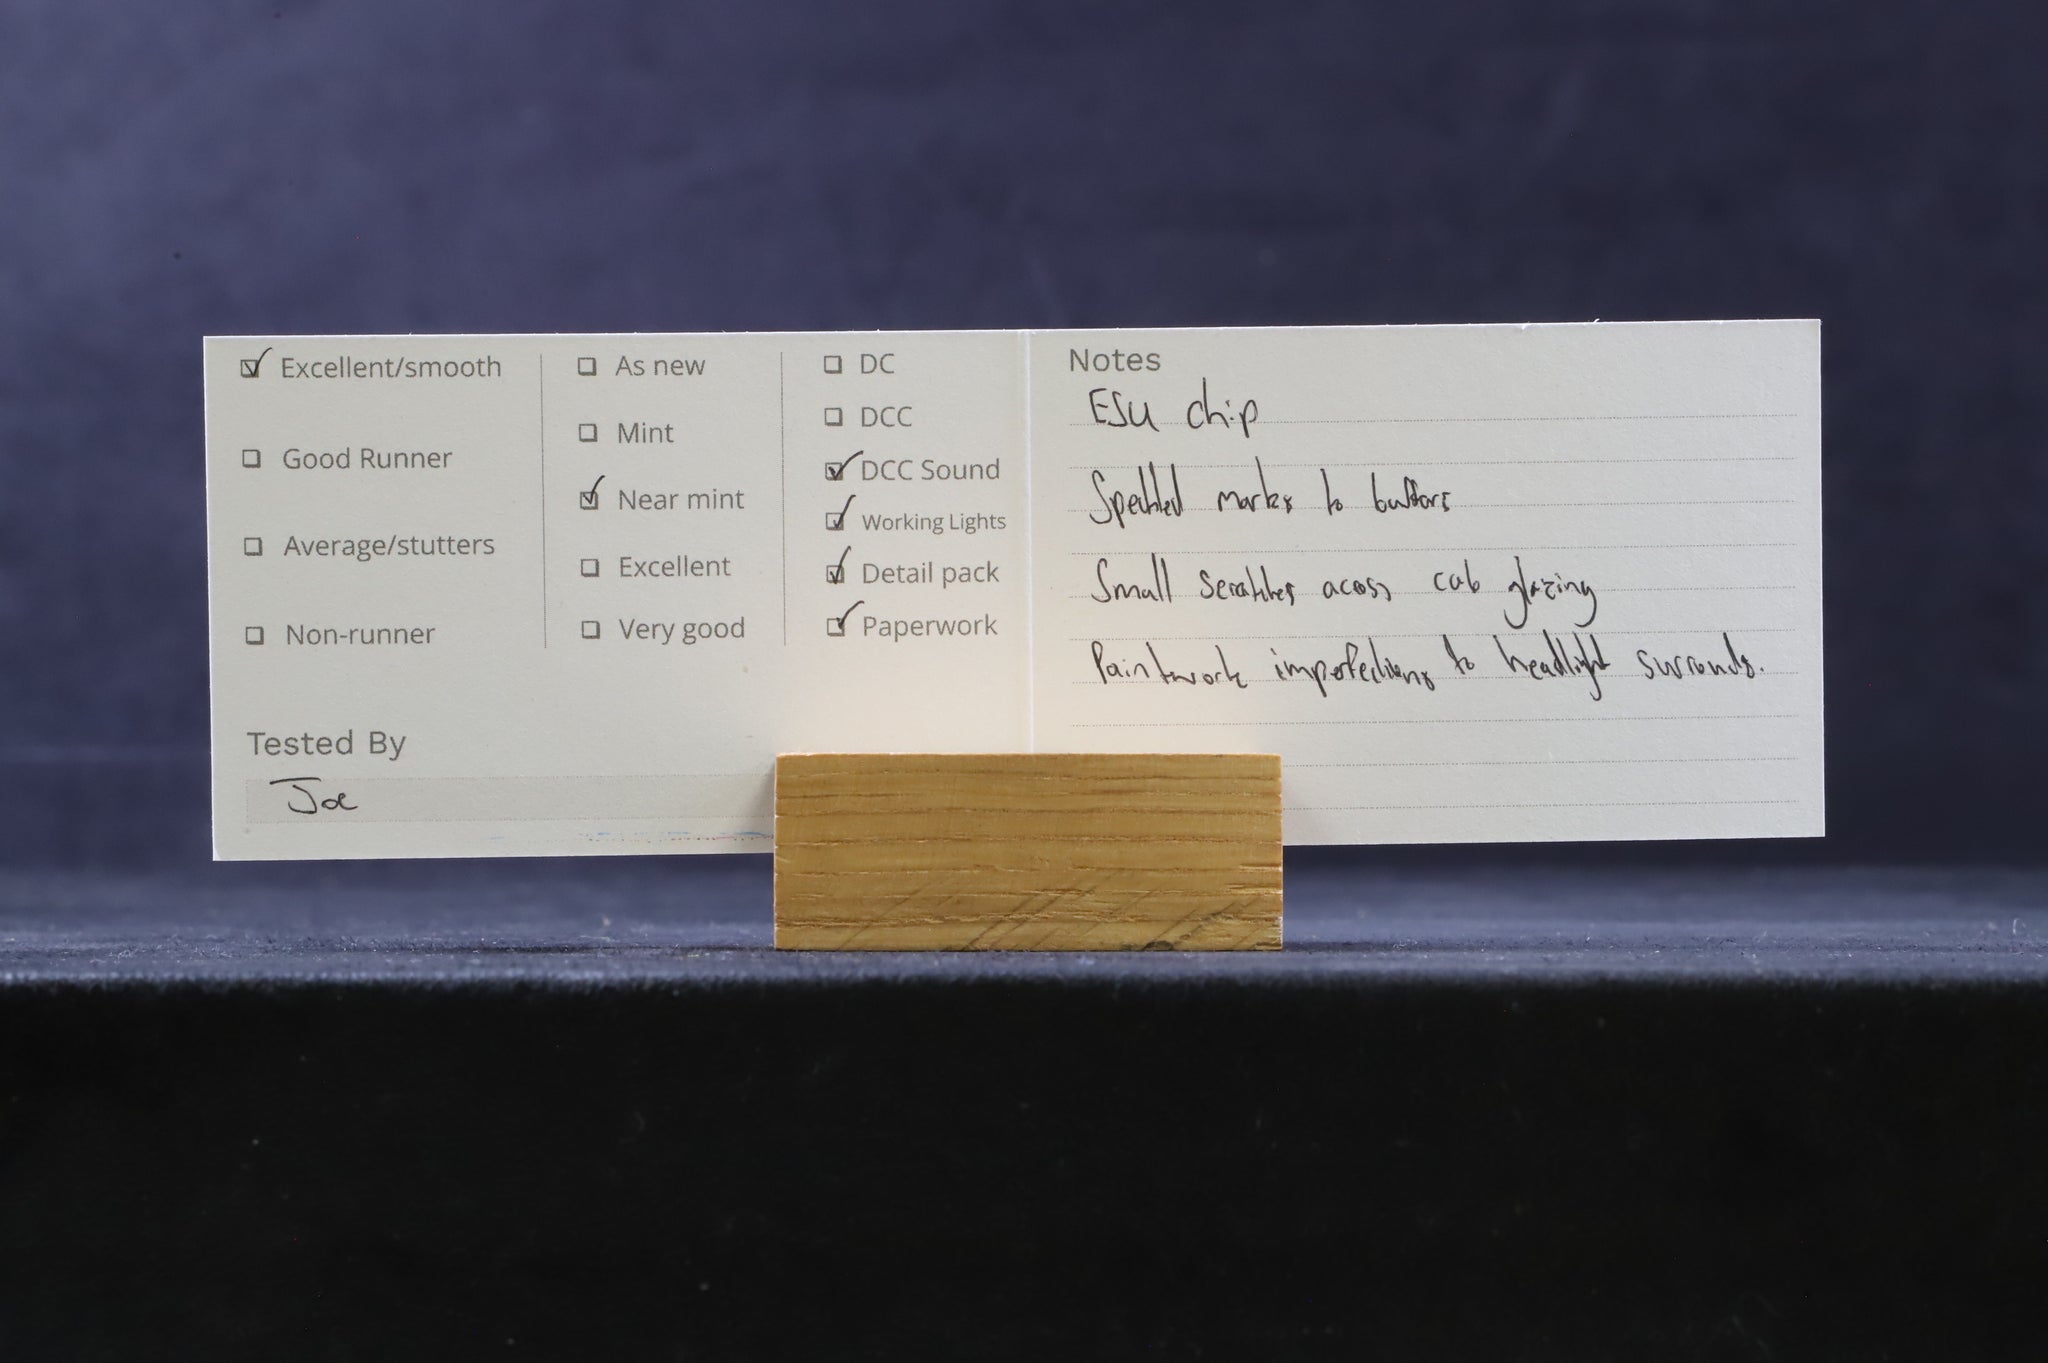 ☑ Excellent/smooth
☐ Good Runner
☐ Average/stutters
☐ Non-runner
☐ As new
☐ Mint
☑ Near mint
☐ Excellent
☐ Very good
☐ DC
☐ DCC
☑ DCC Sound
☑ Working Lights
☑ Detail pack
☑ Paperwork
Tested By
Joe
Notes
ESU chip
Speckled marks to buffers
Small scratches across cab glazing
Paintwork imperfections to headlight surrounds.